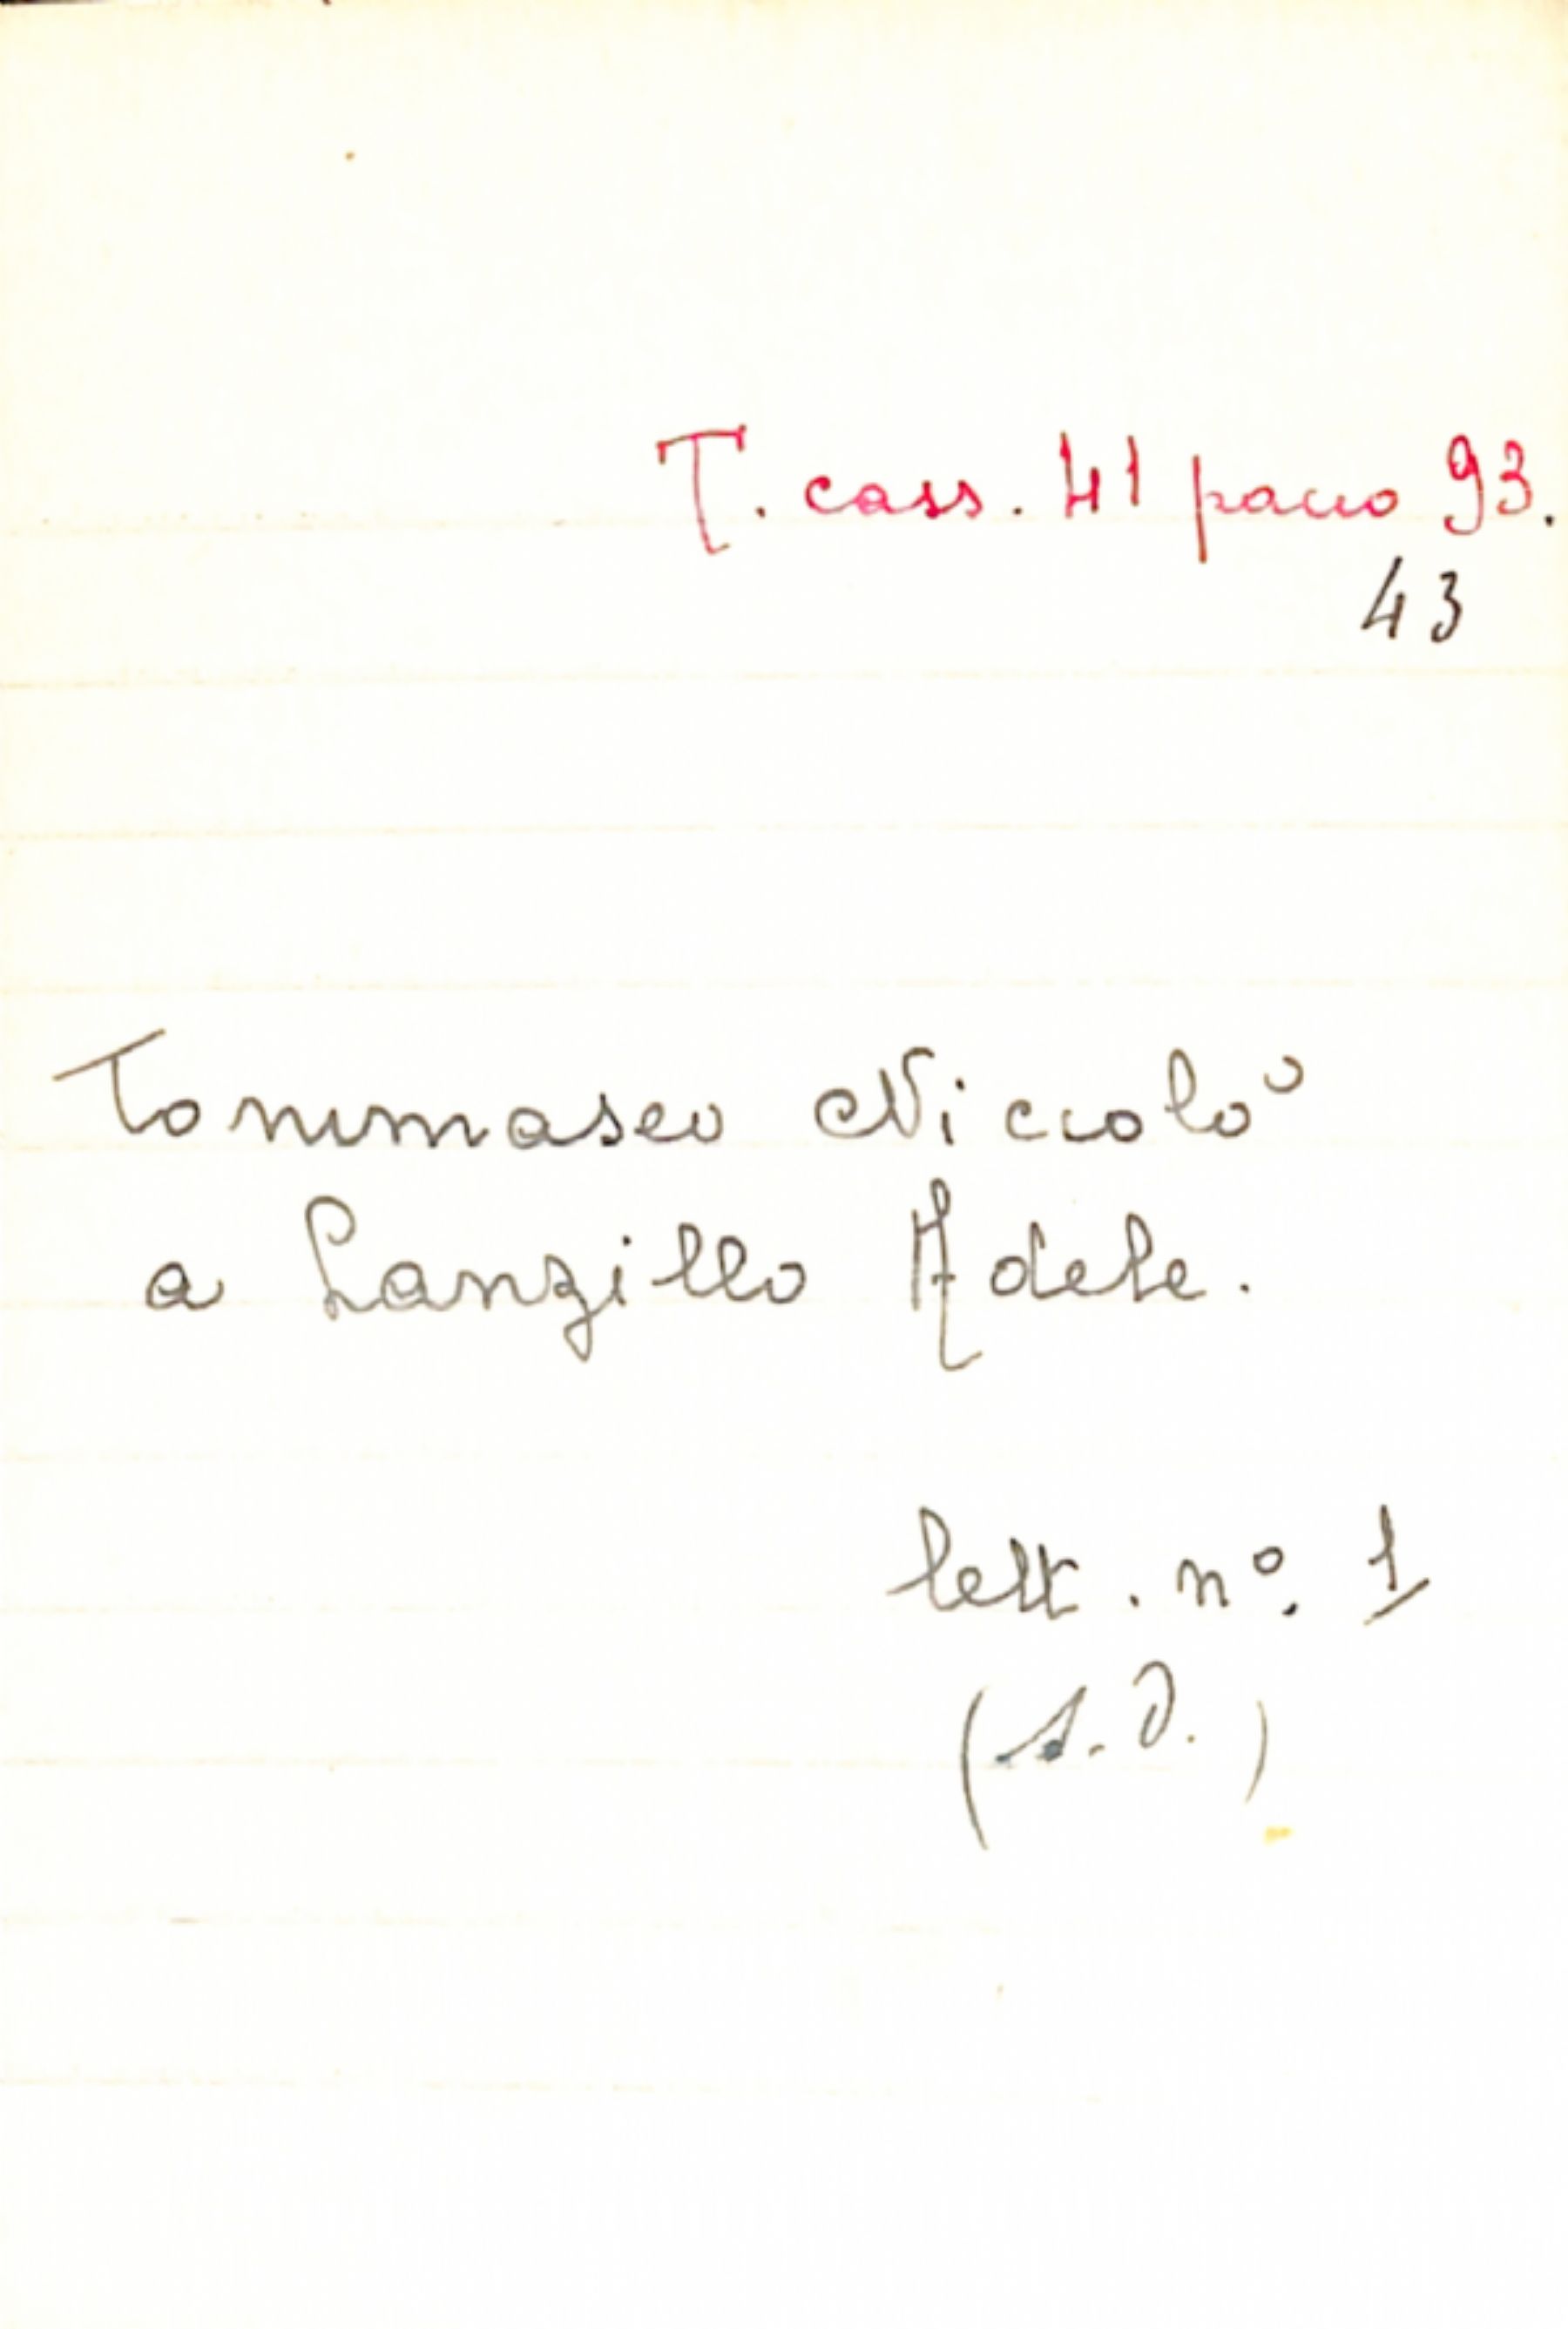 T. cass. 41 pacco 93.
43
Tommaseo Niccolò
a Lanzillo Adele.
lett. nº. 1
(s. d.)